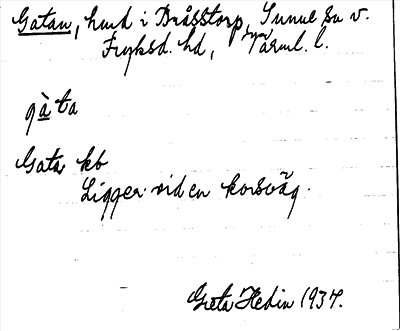 Gatan, hmd i Bråsstorp, Sunne sn v.
Fryksd. hd, Värml. l.
gà ta
Gata kb
Ligger vid en korsväg.
Greta Hedin 1937.